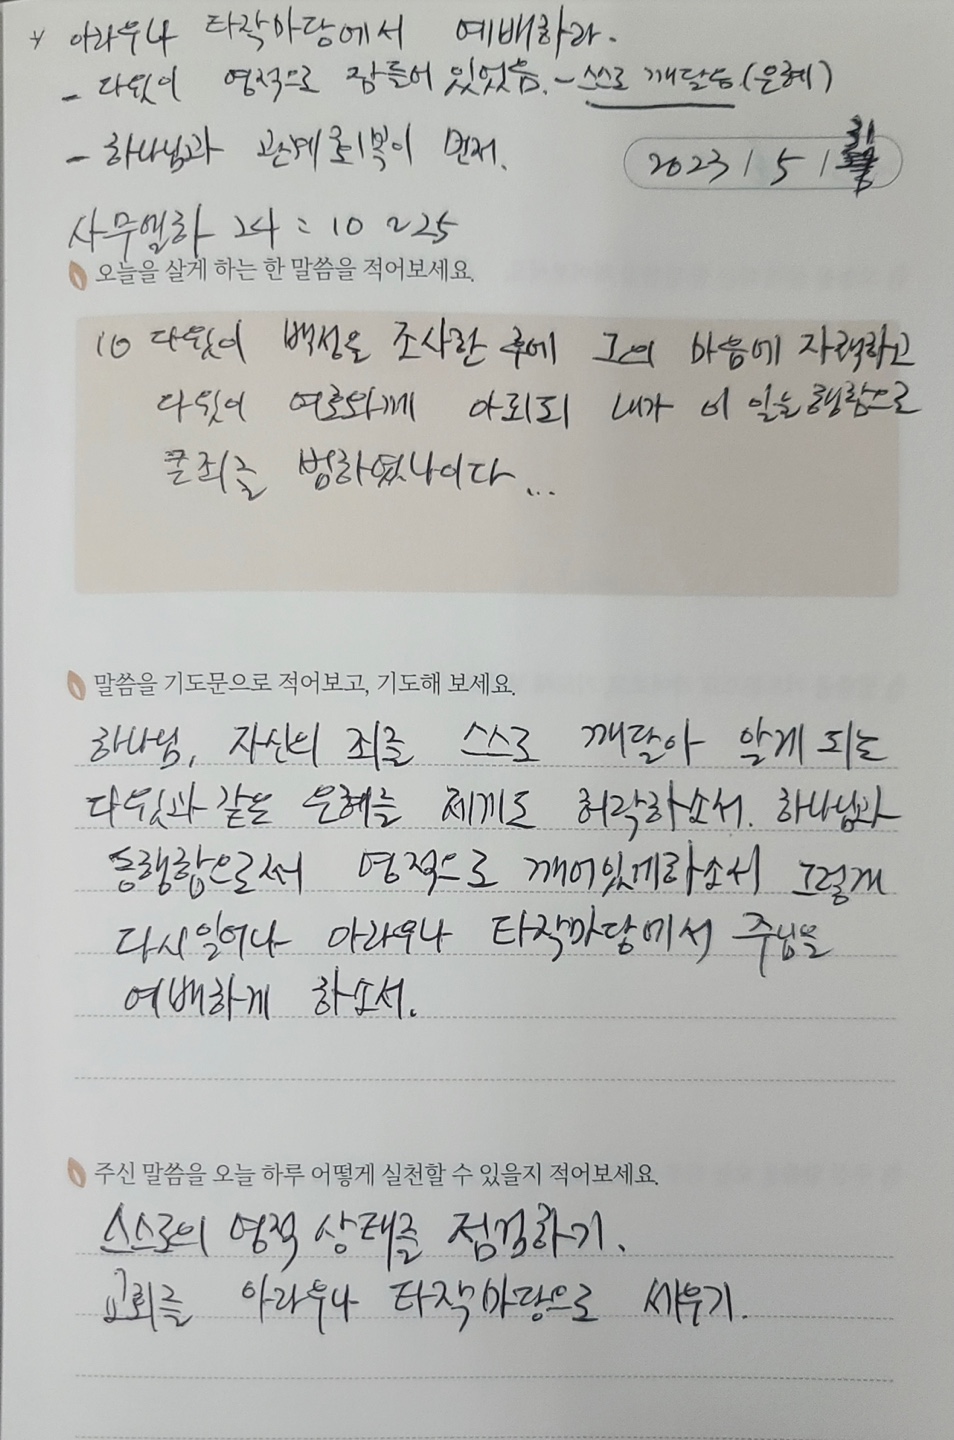 * 아라우나 타작마당에서 예배하라.
- 다윗이 영적으로 잠들어 있었음. - 스스로 깨달음 (은혜)
- 하나님과 관계회복이 먼저.
2023 / 5 / 31
사무엘하 24 : 10 ~ 25
오늘을 살게 하는 한 말씀을 적어보세요.
10 다윗이 백성을 조사한 후에 그의 마음에 자책하고
다윗이 여호와께 아뢰되 내가 이 일을 행함으로
큰 죄를 범하였나이다...
말씀을 기도문으로 적어보고, 기도해 보세요.
하나님, 자신의 죄를 스스로 깨달아 알게 되는
다윗과 같은 은혜를 제게도 허락하소서. 하나님과
동행함으로써 영적으로 깨어있게하소서 그렇게
다시 일어나 아라우나 타작마당에서 주님을
예배하게 하소서.
주신 말씀을 오늘 하루 어떻게 실천할 수 있을지 적어보세요.
스스로의 영적 상태를 점검하기.
교회를 아라우나 타작마당으로 세우기.